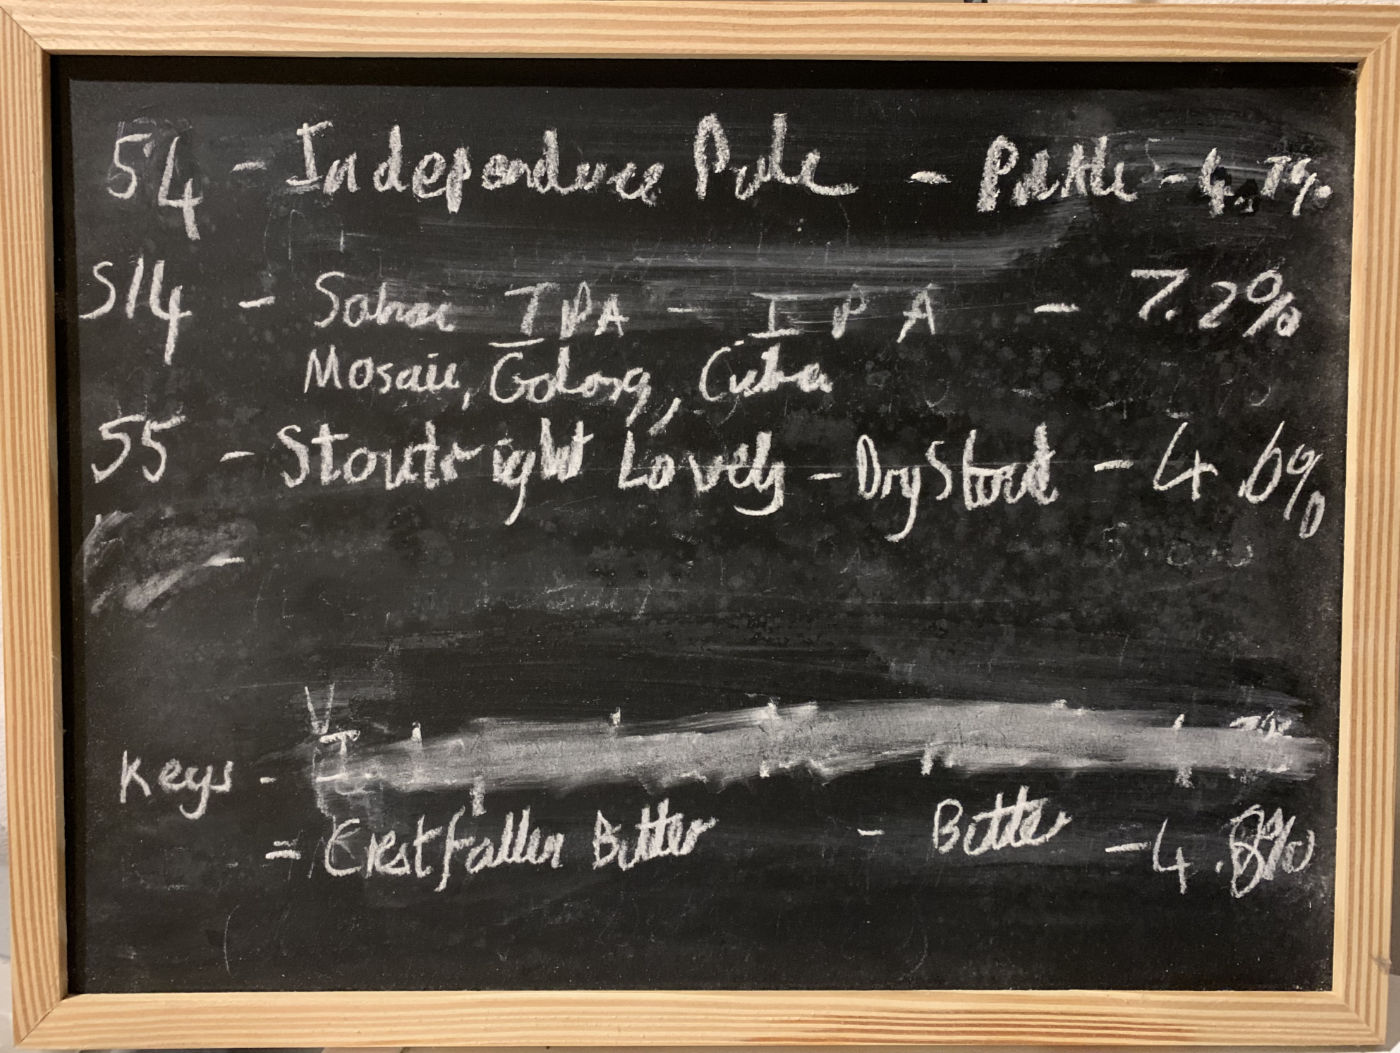 54 - Independence Pale - Pale Ale - 4.7%
S14 - IPA - IPA - 7.2%
Mosaic, Galaxy, Citra
55 - Stoutright Lovely - Dry Stout - 4.6%
-
Keys -
= Crestfallen Bitter - Bitter - 4.8%